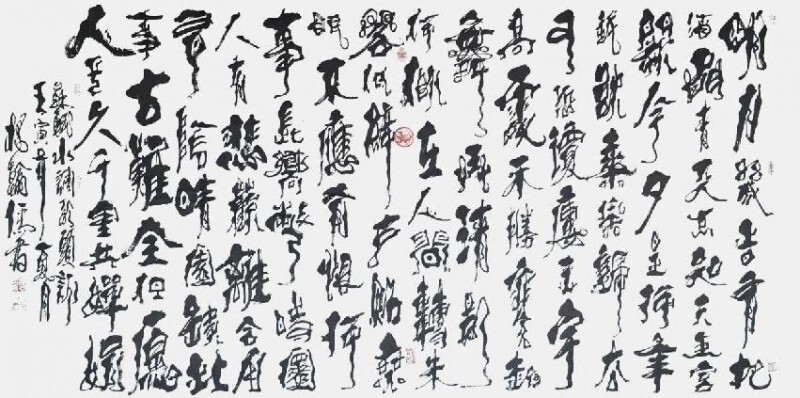 明月幾時有把
酒問青天不知天上宮
闕今夕是何年
我欲乘風歸去
又恐瓊樓玉宇
高處不勝寒起
舞弄清影
何似在人間轉朱
閣低綺戶照無
眠不應有恨何
事長向別時圓
人有悲歡離合月
有陰晴圓缺此
事古難全但願
人長久千里共嬋娟
蘇軾水調歌頭詞
壬寅年夏月
楊翰儒書